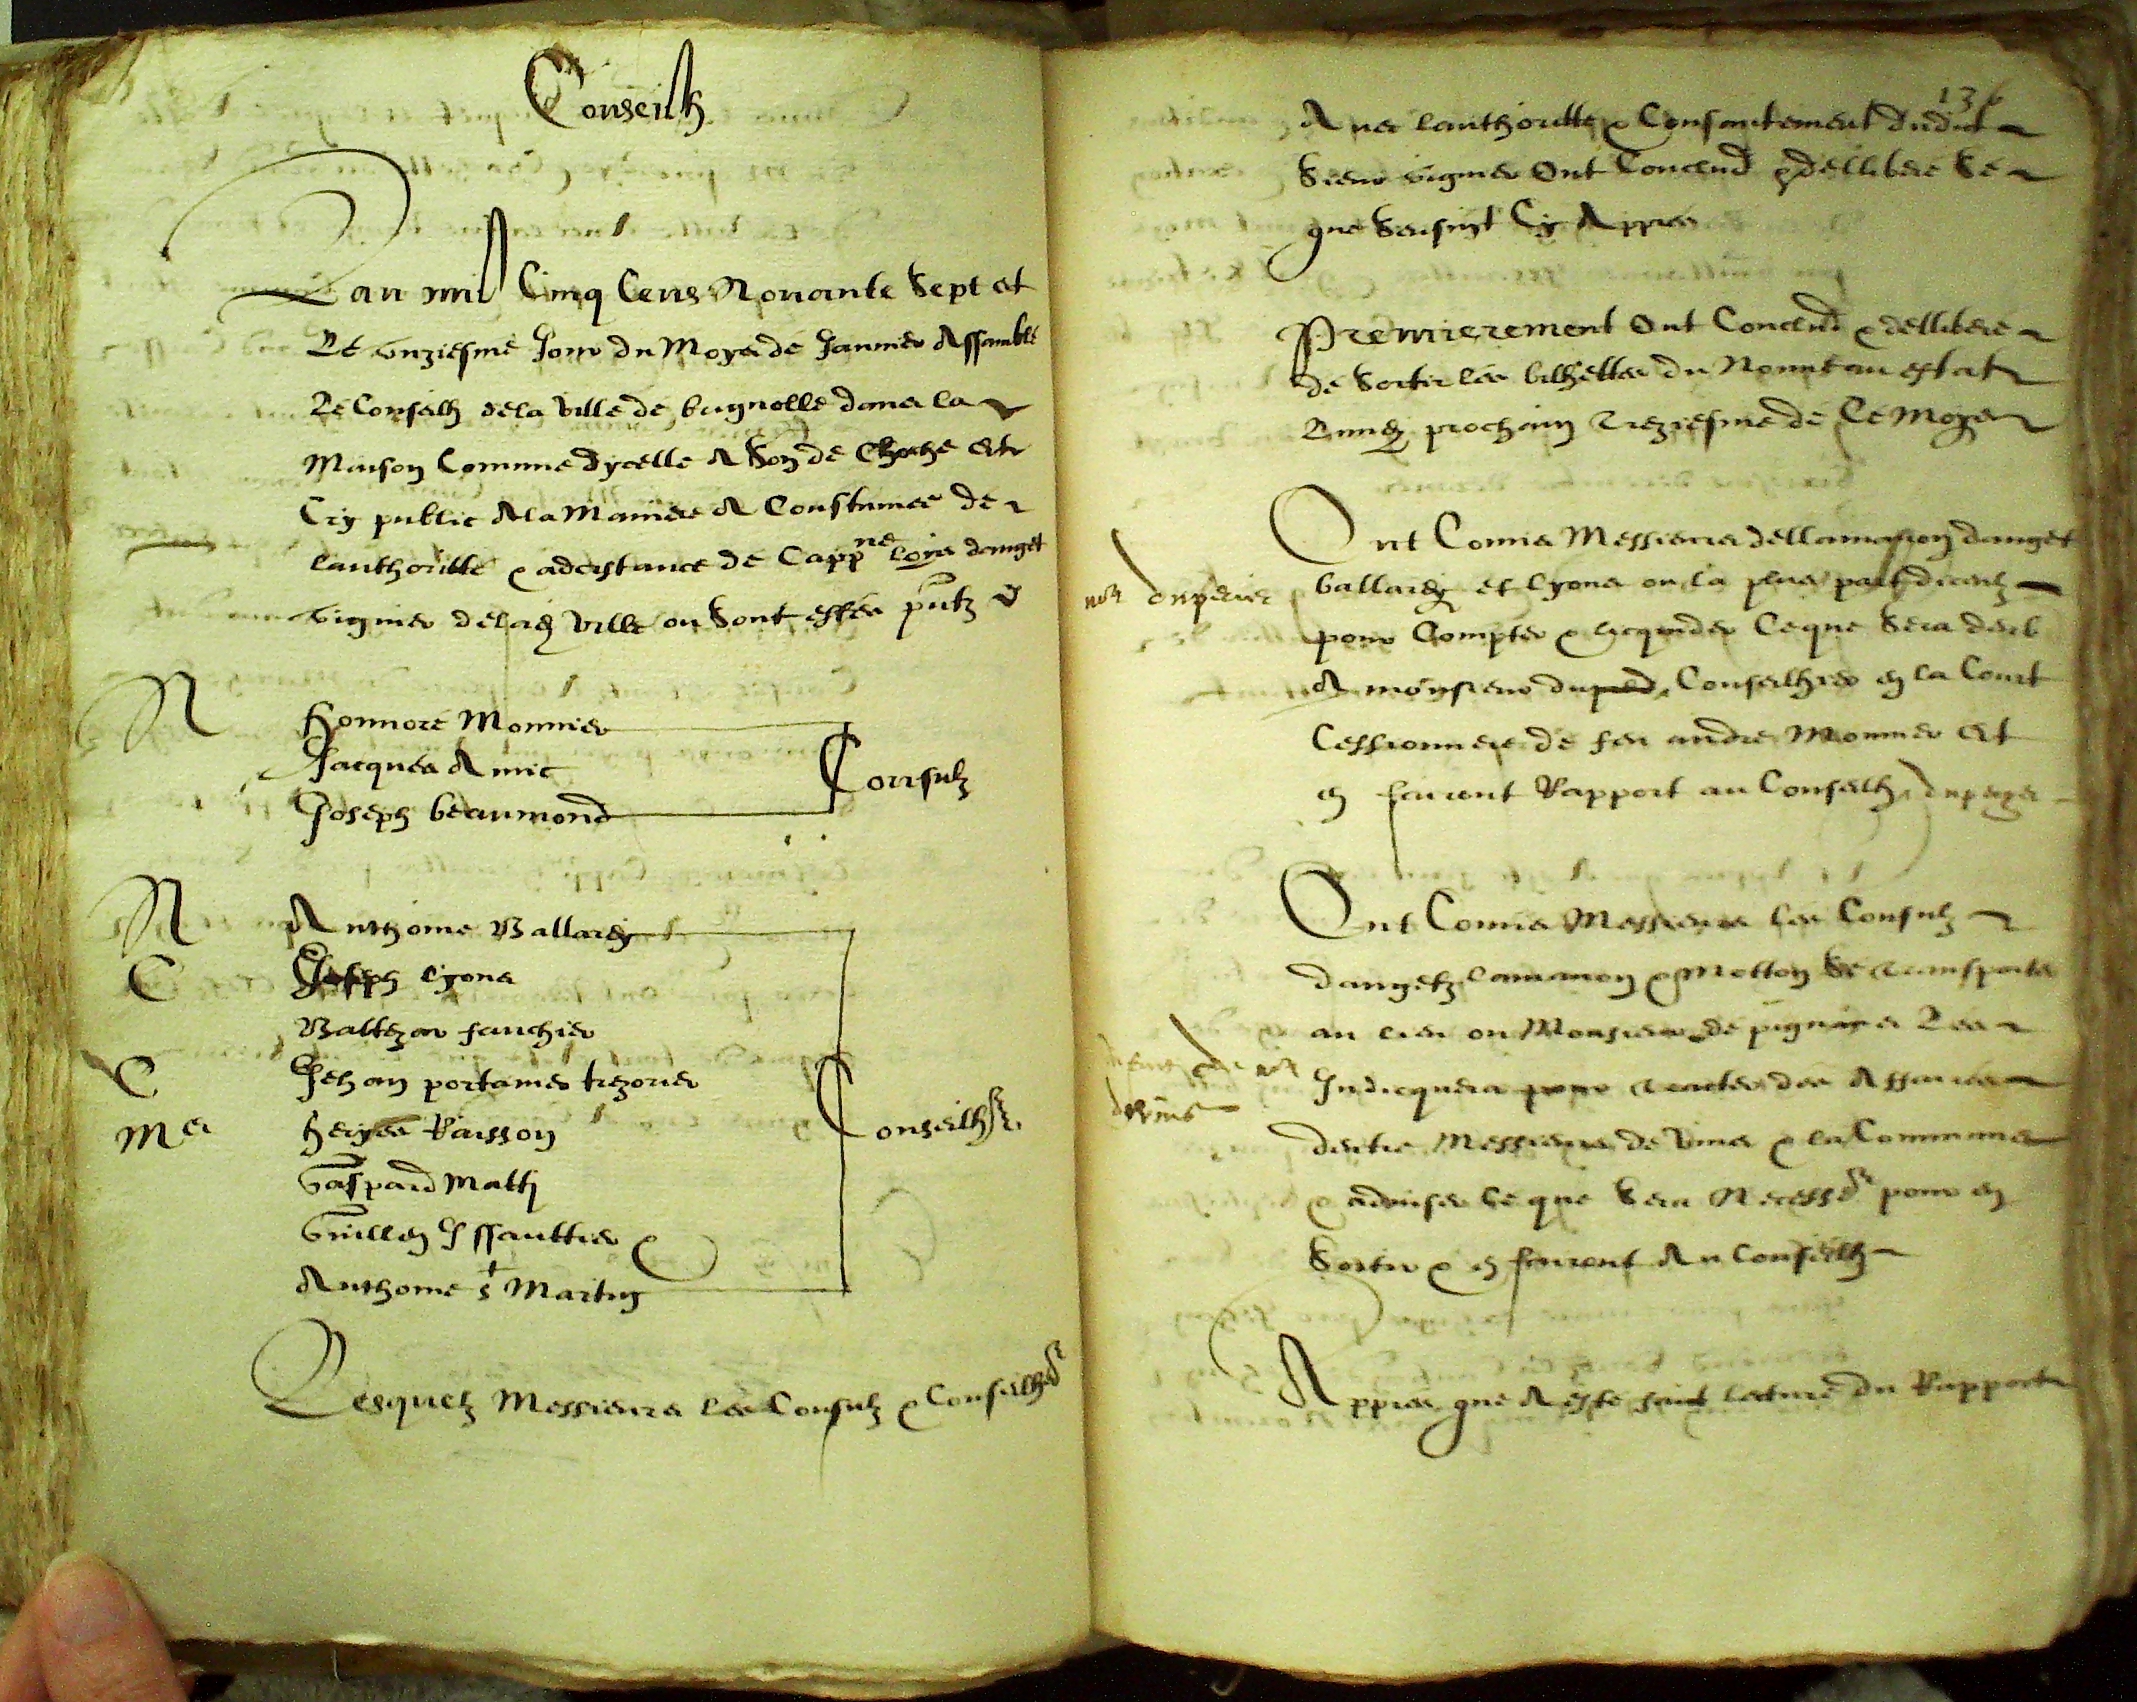 Conseilh
Lan mil Cinq Cens Nonante Sept et
Le unziesme Jour du Moys de Janvier Assamblé
Le Conseilh de la Ville de brignolle dans la
Maison Comune dycelle A Son de Cloche et
Cry public A la Maniere A Coustumee de
lauthoritte & adcistance de Cappne loys danget
viguier de lad Ville ou Sont estés pntz
N
Honnore Monnier
Jacques Amic
Joseph beaumond
Consulz
N Anthoine Ballardy
C Joseph lyons
Baltezar fauchier
C Jehan portanier trezorier
Me heyries Raisson
Gaspard Matty
Guillen Issauttier &
Anthoine st Martin
Conseilhrs
Lesquelz Messieurs les Consulz & Conseilhrs
136
Avec lauthoritte & Consantement dudict
Sieur viguier Ont Concend & delliberé Se
que Sensuyt Cy Appres
Premierement Ont Concend & dellibere
de Sortir les bilhettes du Nouveau estat
Lundy prochain treziesme de Ce Moys
Ont Comis Messieurs dellamanon danget
not duperier
ballardy et lyons ou la plus part diceulz
pour Compter & licquider Ce que Sera deub
A monsieur Conseilhier en la Court
Cessionnere de feu andre Monnier et
en feuront Rapport au Conseilh duperier
Ont Comis Messieurs les Consulz
dangetz lamanon & Motton Se transporter
au lieu ou Monsieur de pignans Les
Indicquera pour traicter des Affaires
de vins
dentre Messieurs de Vins & la Commune
& adviser Ce que Sera Necessre pour en
Sortir & en feuront Au Conseilh
Appres que A esté faict lecture du Rapport